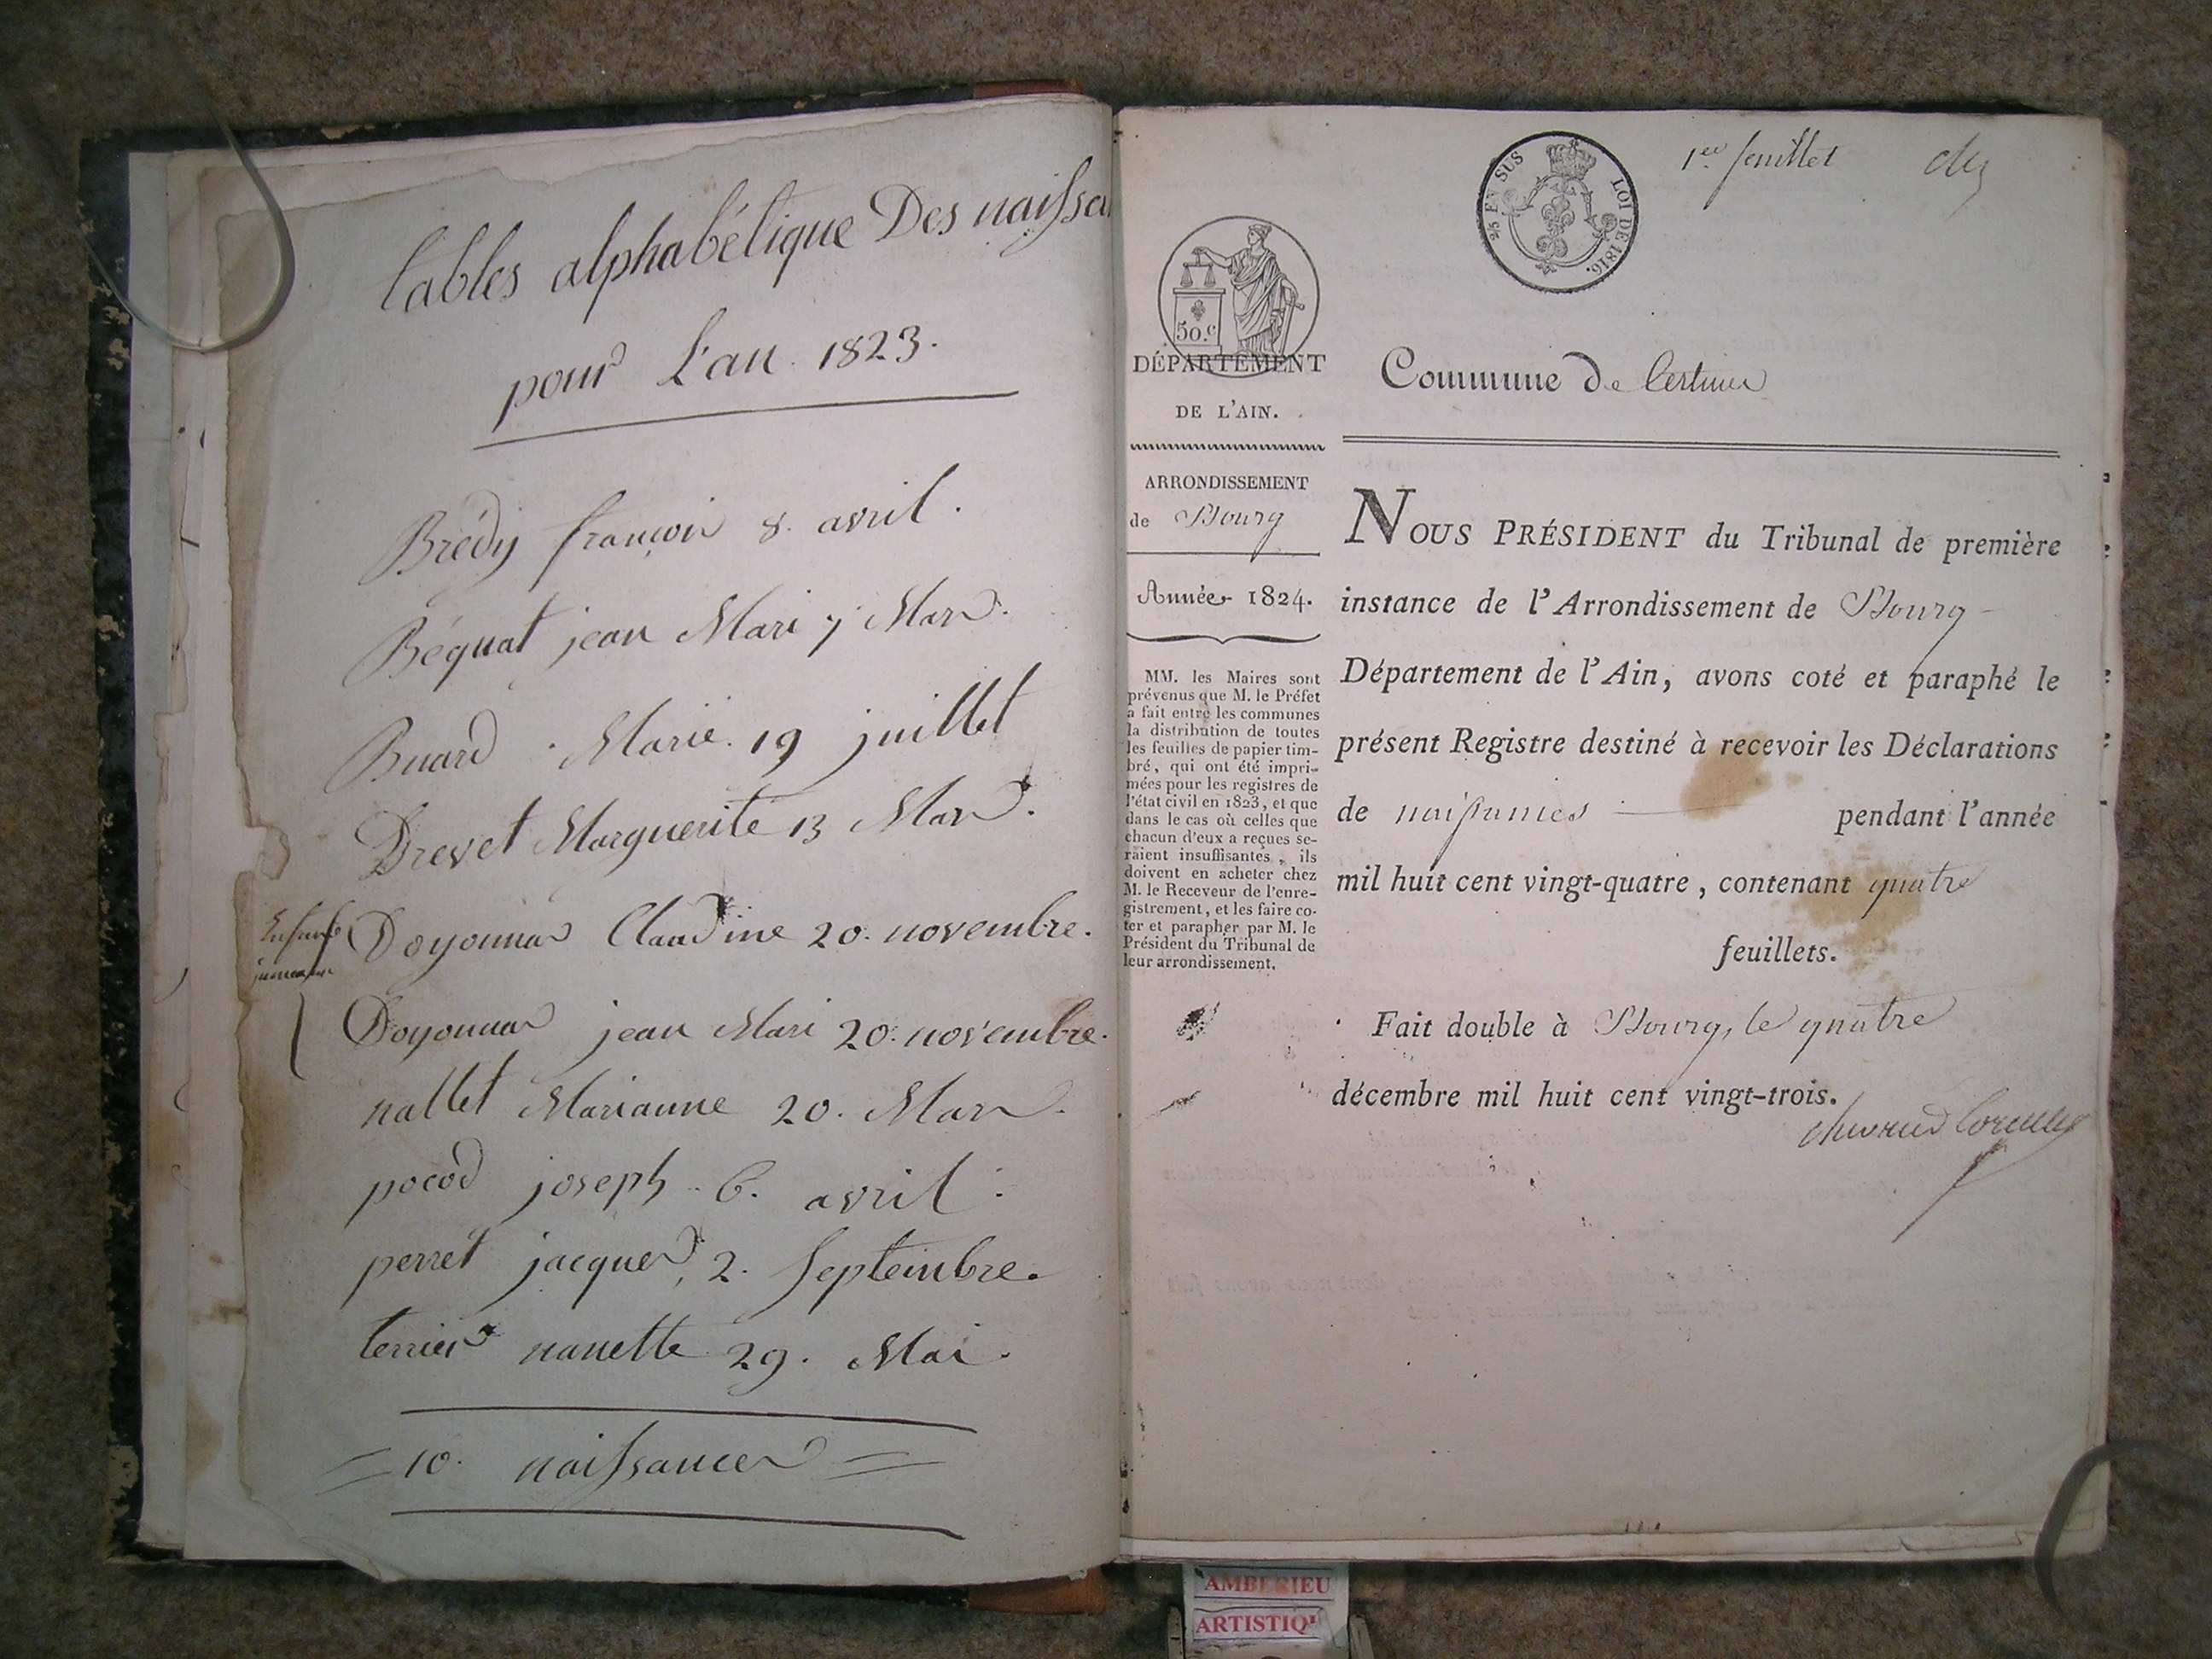 tables alphabétique Des naissan
pour L'an 1823.
Brédy françois 8 avril.
Béquat jean Mari 7 Mars.
Buard Marie 19 juillet
Drevet Marguerite 13 Mars.
Enfants
jumeaux
Doyonnas Claudine 20 novembre.
Doyonnas jean Mari 20 novembre.
nallet Marianne 20. Mars.
pocod joseph 6. avril.
perret jacques, 2. Septembre.
terrier nanette 29. Mai.
= 10. naissances =
1er feuillet
2/5 EN SUS LOI DE 1816.
50.c
DÉPARTEMENT
DE L'AIN.
ARRONDISSEMENT
de Bourg
Année 1824.
MM. les Maires sont
prévenus que M. le Préfet
a fait entre les communes
la distribution de toutes
les feuilles de papier tim-
bré, qui ont été impri-
mées pour les registres de
l'état civil en 1823, et que
dans le cas où celles que
chacun d'eux a reçues se-
raient insuffisantes, ils
doivent en acheter chez
M. le Receveur de l'enre-
gistrement, et les faire co-
ter et parapher par M. le
Président du Tribunal de
leur arrondissement.
Commune De Certines
NOUS PRÉSIDENT du Tribunal de première
instance de l'Arrondissement de Bourg
Département de l'Ain, avons coté et paraphé le
présent Registre destiné à recevoir les Déclarations
de naissances pendant l'année
mil huit cent vingt-quatre, contenant quatre
feuillets.
Fait double à Bourg, le quatre
décembre mil huit cent vingt-trois.
AMBERIEU
ARTISTIQU